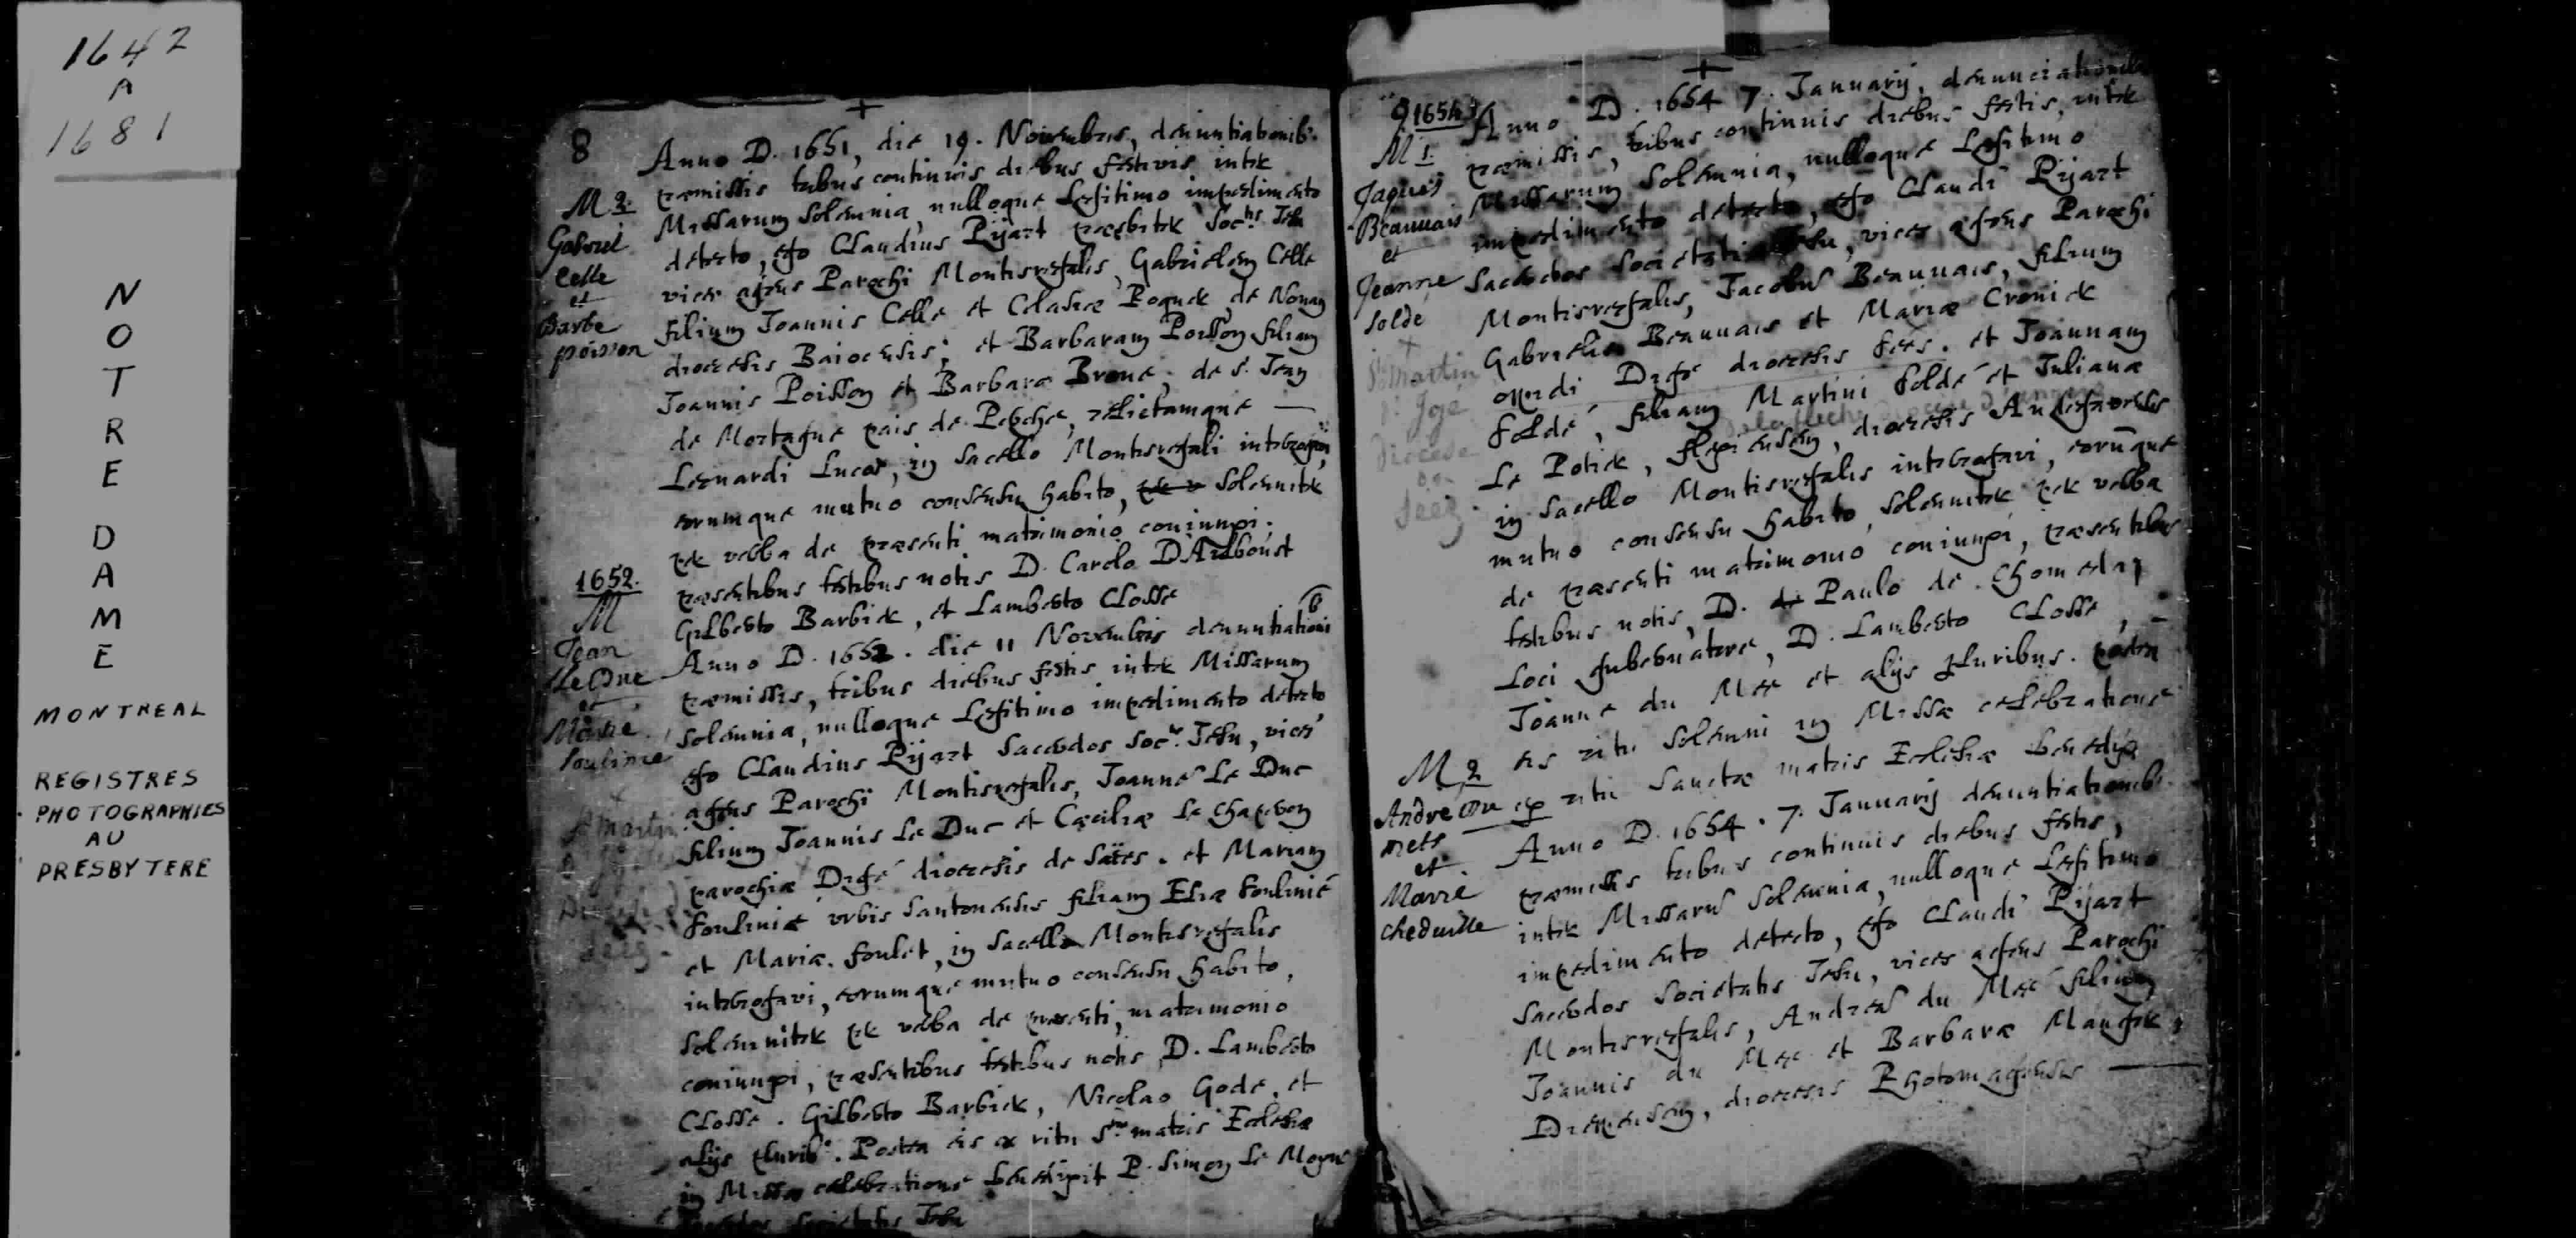 1642
A
1681
NOTRE DAME
MONTREAL
REGISTRES
PHOTOGRAPHIES
AU
PRESBYTERE
8
Anno D. 1651, die 19. Novembris, denuntiationib.
præmissis tribus continuis diebus festivis inter
Missarum solemnia, nulloque legitimo impedimento
detecto, ego Claudius Pijart præsbiter Soc.is Jesu
vices agens Parochi Montisregalis, Gabrielem Celle
filium Joannis Celle et Colasiæ Roguer, de Nonay
diocesis Baiocensis; et Barbaram Poisson filiam
Joannis Poisson et Barbaræ Brone, de S. Jean
de Mortagne pais de Perche, relictamque
Leonardi Lucas, in sacello Montisregali interrogavi,
eorumque mutuo consensu habito, solemniter
per verba de præsenti matrimonio coniunxi.
præsentibus testibus notis D. Carolo DAilboust
Gilberto Barbier, et Lamberto Closse
M 2.
Gabriel
Celle
et
Barbe
poisson
1652.
M
Jean
LeDuc
et
Marie
Soulinie
Anno D. 1652. die 11 Novembris denuntiationi
præmissis, tribus diebus festis inter Missarum
solemnia, nulloque legitimo impedimento detecto
ego Claudius Pijart Sacerdos Soc. Jesu, vices
agens Parochi Montisregalis, Joannem Le Duc
filium Joannis Le Duc et Cæciliæ Le Chaperon
parochiæ D'Igé diocesis de Säes. et Mariam
Soulinié urbis Santonensis filiam Eliæ Soulinié
et Mariæ Foulet, in sacello Montisregalis
interrogavi, eorumque mutuo consensu habito,
solemniter per verba de præsenti, matrimonio
coniunxi, præsentibus testibus notis D. Lamberto
Closse. Gilberto Barbier, Nicolao Gode, et
alijs plurib. Postea eis ex ritu S. matris Ecclesiæ
in Missæ celebratione benedixit P. Simon Le Moyne
Sacerdos Societatis Jesu
9
1654
Anno D. 1654 7. Januarij, denunciationib.
præmissis, tribus continuis diebus festis, inter
Missarum solemnia, nulloque legitimo
impedimento detecto, ego Claudi Pijart
Sacerdos Societatis Jesu, vices agens Parochi
Montisregalis, Jacobum Beauvais, filium
Gabrielis Beauvais et Mariæ Cronier
D'Igé diocesis Sees. et Joannam
Soldé, filiam Martini Soldé et Julianæ
Le Potier, diocesis Andegavensis
in sacello Montisregalis interrogavi, eorumque
mutuo consensu habito, solemniter per verba
de præsenti matrimonio coniunxi, præsentibus
testibus notis, D. Paulo de Chomeday
Loci gubernatore, D. Lamberto Closse,
Joanne du Mée et alijs pluribus. postea
eis ritu solemni in Missæ celebratione
ritu Sanctæ matris Ecclesiæ benedixi
M 1.
Jaques
Beauvais
et
Jeanne
Solde
St Martin
d'Igé
Diocese
de
Seez.
M 2
Andre
mets
et
Marie
cheduille
Anno D. 1654. 7. Januarij denuntiationib.
præmissis tribus continuis diebus festis,
inter Missarum solemnia, nulloque legitimo
impedimento detecto, ego Claudi Pijart
Sacerdos Societatis Jesu, vices agens Parochi
Montisregalis, Andream du Mée filium
Joannis du Mée et Barbaræ Mauger
diocesis Rhotomagensis